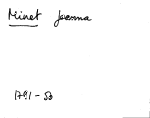 Minet Joanna
1791 - 53